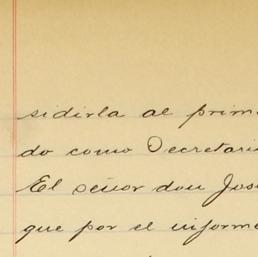 sidirla al prim
do como Secretari
El señor don Jos
que por el informe